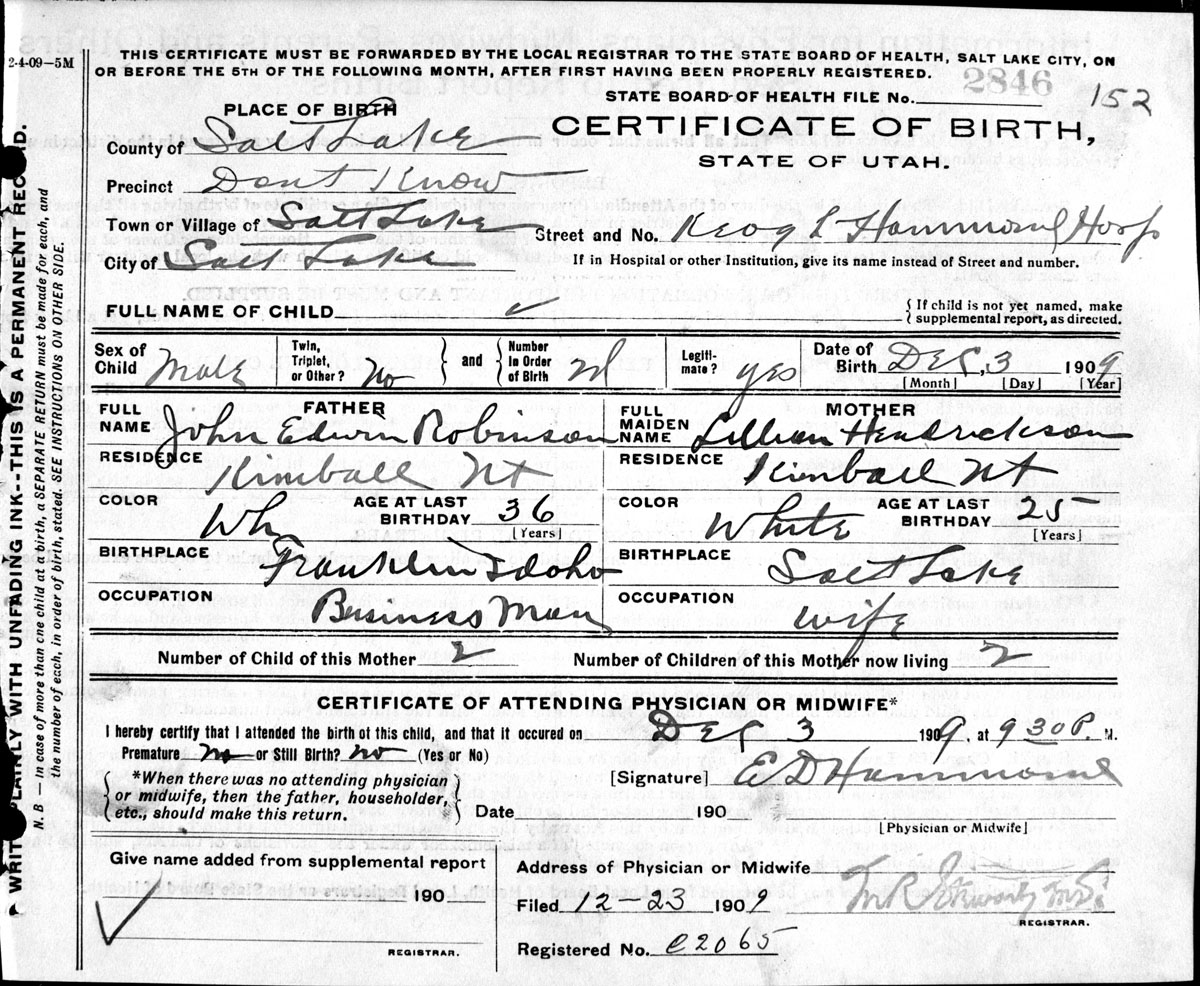 2-4-09—5M
THIS CERTIFICATE MUST BE FORWARDED BY THE LOCAL REGISTRAR TO THE STATE BOARD OF HEALTH, SALT LAKE CITY, ON
OR BEFORE THE 5TH OF THE FOLLOWING MONTH, AFTER FIRST HAVING BEEN PROPERLY REGISTERED.
2846
STATE BOARD OF HEALTH FILE No. 152
PLACE OF BIRTH
CERTIFICATE OF BIRTH,
STATE OF UTAH.
County of Salt Lake
Precinct Dont Know
Town or Village of Salt Lake
Street and No. Keog L Hammond Hosp
City of Salt Lake
If in Hospital or other Institution, give its name instead of Street and number.
FULL NAME OF CHILD
{ If child is not yet named, make supplemental report, as directed.
Sex of Child Male
Twin, Triplet, or Other? No
and
Number in Order of Birth
Legitimate? yes
Date of Birth Dec, 3 1909
[Month] [Day] [Year]
FATHER
FULL NAME John Edwin Robinson
RESIDENCE Kimball Ut
COLOR Wh
AGE AT LAST BIRTHDAY 36
[Years]
BIRTHPLACE Franklin Idaho
OCCUPATION Business Man
MOTHER
FULL MAIDEN NAME Lillian Hendrickson
RESIDENCE Kimball Ut
COLOR White
AGE AT LAST BIRTHDAY 25
[Years]
BIRTHPLACE Salt Lake
OCCUPATION wife
Number of Child of this Mother 2
Number of Children of this Mother now living 2
CERTIFICATE OF ATTENDING PHYSICIAN OR MIDWIFE*
I hereby certify that I attended the birth of this child, and that it occured on Dec 3 1909, at 9 30 P. M.
Premature no or Still Birth? no (Yes or No)
*When there was no attending physician
or midwife, then the father, householder,
etc., should make this return.
[Signature] E D Hammond
Date 190
[Physician or Midwife]
Give name added from supplemental report
190
REGISTRAR.
Address of Physician or Midwife
Filed 12-23 1909
T.R. Stewart M.D.
REGISTRAR.
Registered No. C2065
WRITE PLAINLY WITH UNFADING INK--THIS IS A PERMANENT RECORD.
N. B — In case of more than one child at a birth, a SEPARATE RETURN must be made for each, and
the number of each, in order of birth, stated. SEE INSTRUCTIONS ON OTHER SIDE.